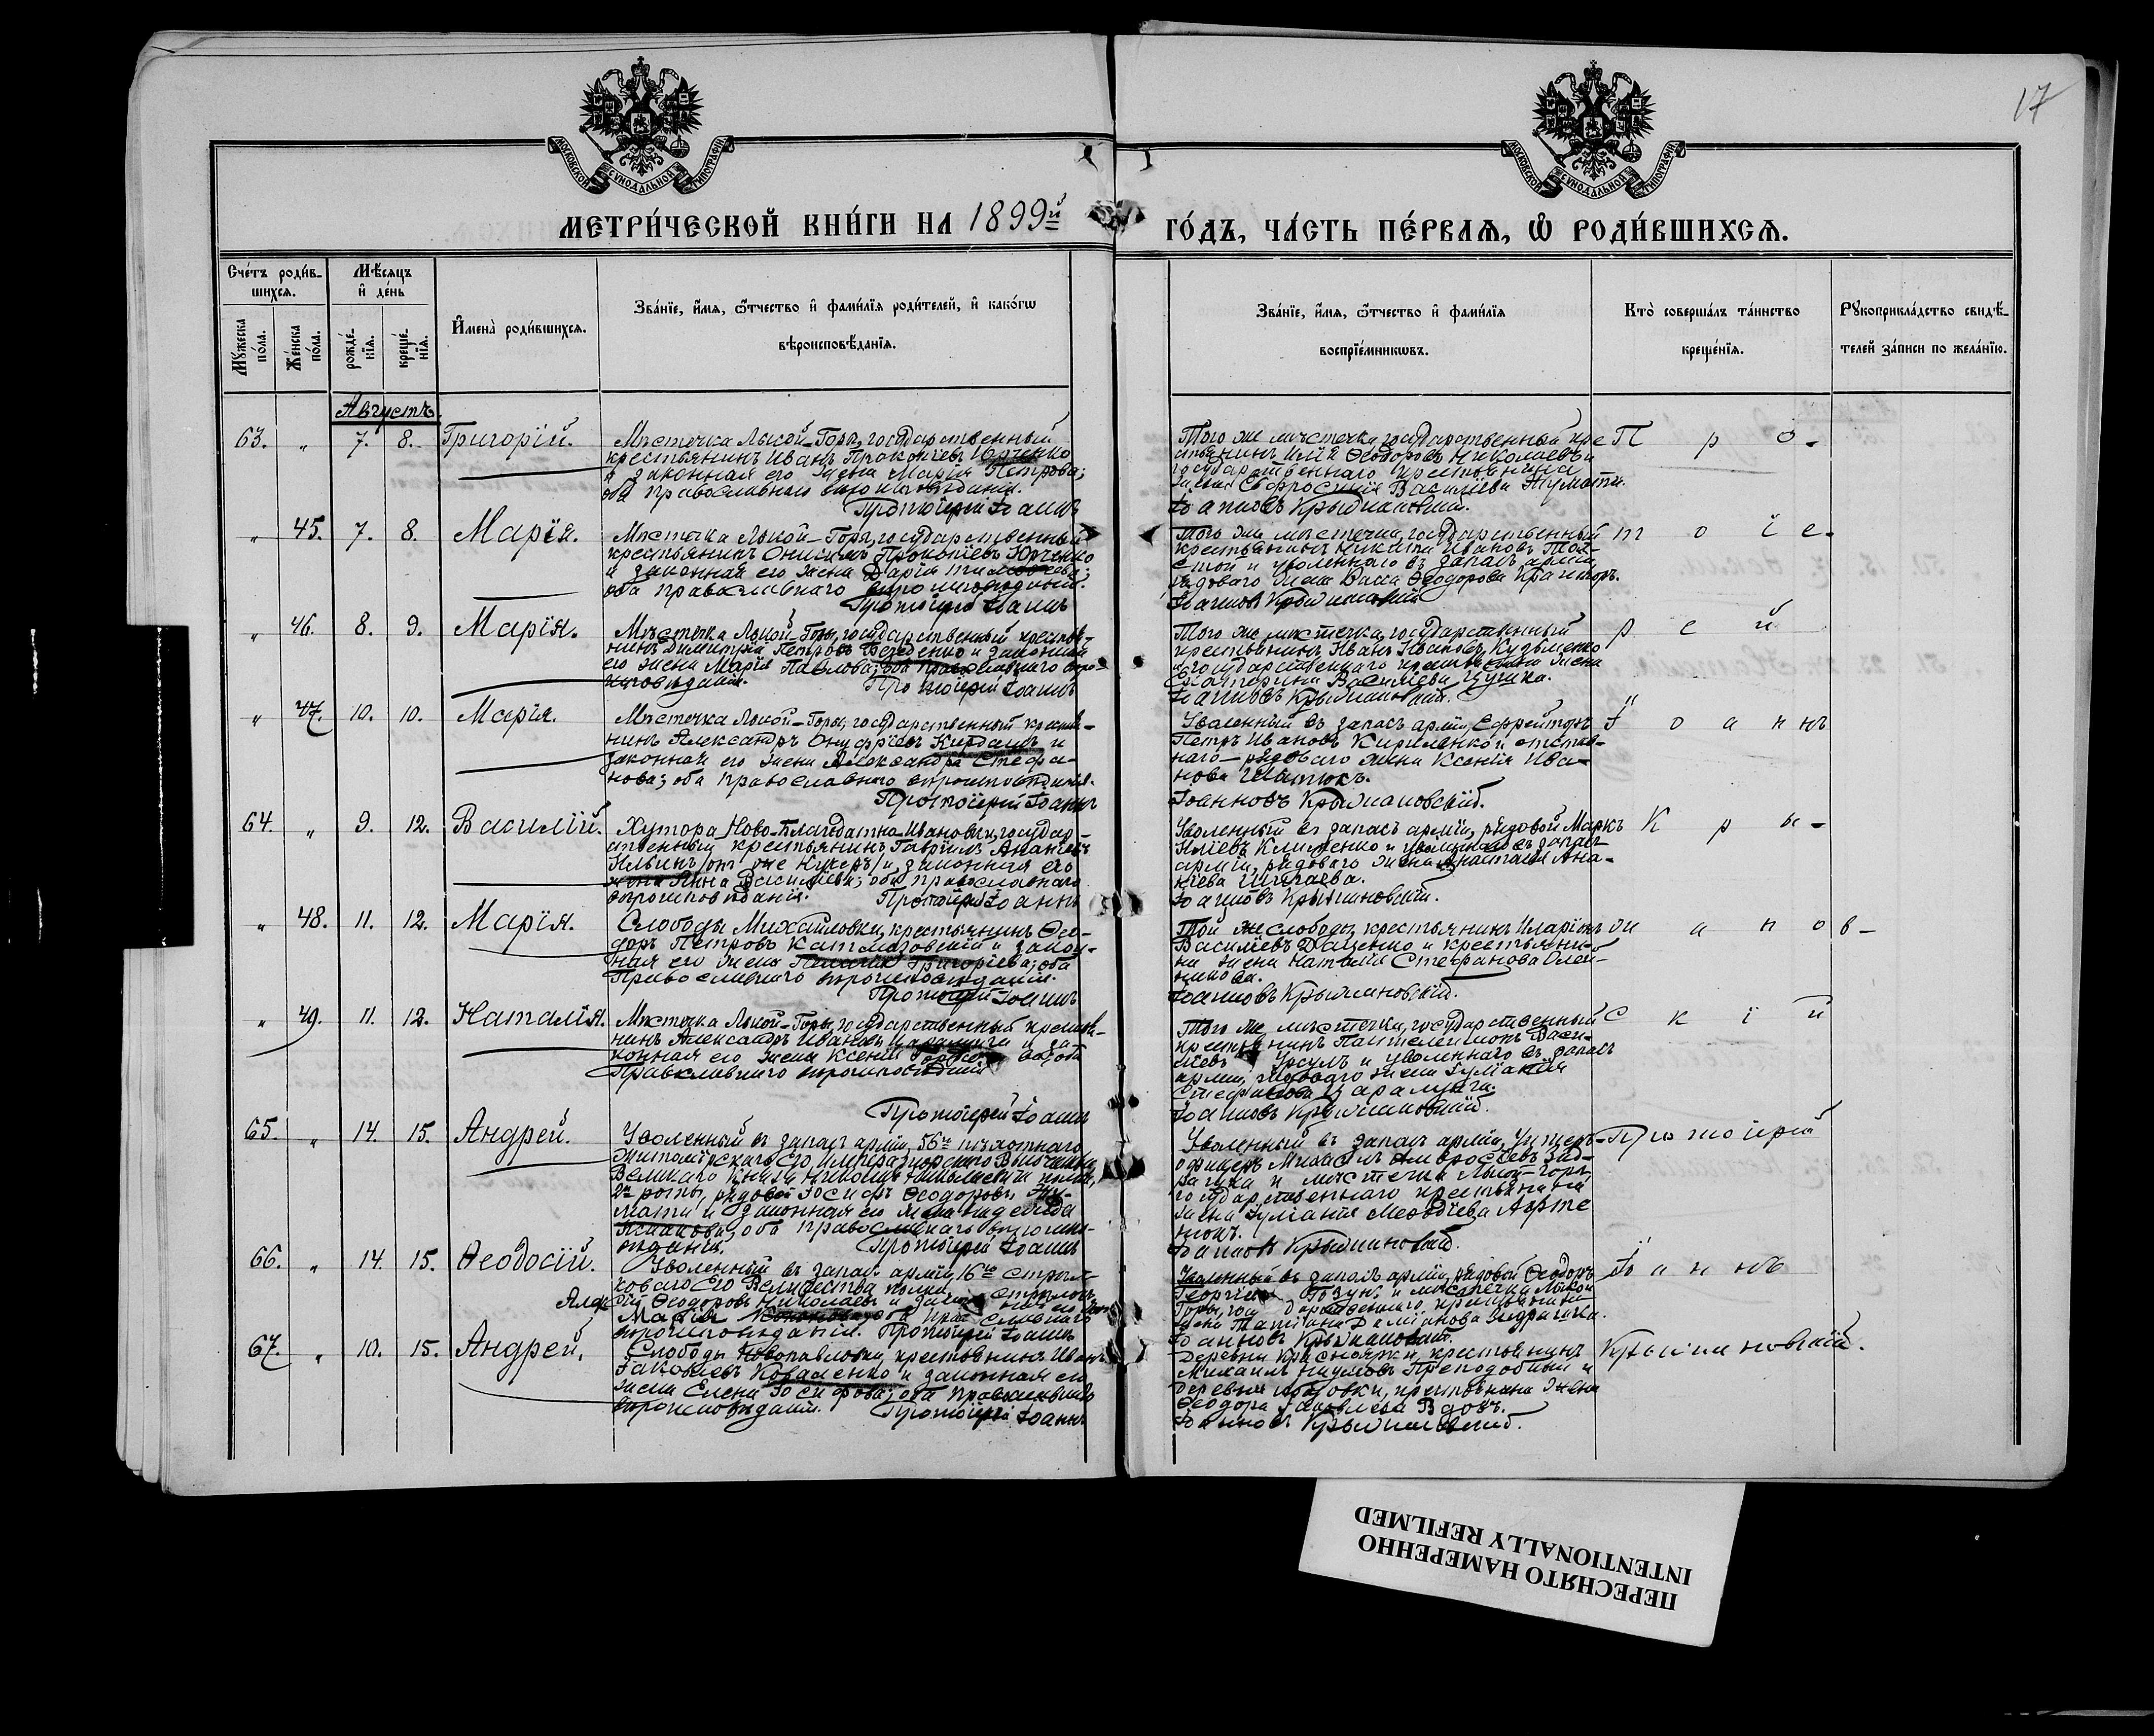 17
МОСКОВСКОЙ СѴНОДАЛЬНОЙ ТИПОГРАФІИ
МОСКОВСКОЙ СѴНОДАЛЬНОЙ ТИПОГРАФІИ
МЕТРИ́ЧЕСКОЙ КНИ́ГИ НА 1899й
ГО́ДЪ, ЧА́СТЬ ПЕ́РВАѦ, Ѡ РОДИ́ВШИХСѦ.
Сче́тъ роди́в-
шихся.
Мѣ́сяцъ
и де́нь
Му́жеска по́ла.
Же́нска по́ла.
рожде́-
нїя.
креще́-
нїя.
Имена̀ роди́вшихся.
Зва́нїе, и́мя, ѻ́тчество и фами́лїя роди́телей, и како́гѡ
вѣроисповѣ́данїя.
Зва́нїе, и́мя, ѻ́тчество и фами́лїя
воспрїе́мникѡвъ.
Кто̀ соверша́лъ та́инство
креще́нїя.
Рукоприкла́дство свидѣ́-
телей за́писи по жела́нїю.
Августъ.
63. " 7. 8. Григорій.
Мѣстечка Лысой-Горы, государственный
крестьянинъ Иванъ Прокопіевъ Юрченко
и законная его жена Марія Петрова;
оба православнаго вѣроисповѣданія.
Протоіерей Іоаннъ
Того же мѣстечка, государственный кре
стьянинъ Илія Ѳеодоровъ Николаевъ и
государственнаго крестьянина
жена Евфросинія Василіева
Іоанновъ Крыжановскій.
П р о-
" 45. 7. 8. Марія.
Мѣстечка Лысой-Горы, государственный
крестьянинъ Онисимъ Прокопіевъ Юрченко
и законная его жена Дарія Тимоѳеева;
оба православнаго вѣроисповѣданія.
Протоіерей Іоаннъ
Того же мѣстечка, государственный
крестьянинъ Никита Ивановъ Тол-
стой и уволеннаго въ запасъ арміи,
рядоваго жена Ѳеодорова
Іоанновъ Крыжановскій
т о і е-
" 46. 8. 9. Марія.
Мѣстечка Лысой-Горы, государственный крестья-
нинъ Димитрій Петровъ и законная
его жена Марія Павлова; оба православнаго вѣро-
исповѣданія.
Протоіерей Іоаннъ
Того же мѣстечка, государственный
крестьянинъ Иванъ Ивановъ Кузьменко
и государственнаго крестьянина жена
Екатерина Василіева
Іоанновъ Крыжановскій.
р е й
" 47. 10. 10. Марія.
Мѣстечка Лысой-Горы, государственный крестья-
нинъ Александръ Онуфріевъ и
законная его жена Александра Стефа-
нова; оба православнаго вѣроисповѣданія.
Протоіерей Іоаннъ
Уволенный въ запасъ арміи, Ефрейторъ
Петръ Ивановъ Кириленко и отстав-
наго рядоваго жена Ксенія Ива-
нова
Іоанновъ Крыжановскій.
І о а н нъ
64. " 9. 12. Василій.
Хутора Ново-Благодатна-Ивановки, государ-
ственный крестьянинъ Гавріилъ Ананіевъ
Ильинъ и законная его
жена Анна Василіева; оба православнаго
вѣроисповѣданія. Протоіерей Іоаннъ
Уволенный въ запасъ арміи, рядовой Маркъ
Иліевъ Клименко и уволеннаго въ запасъ
арміи, рядоваго жена Анастасія Ана-
ніева
Іоанновъ Крыжановскій.
К р ы-
" 48. 11. 12. Марія.
Слободы Михайловки, крестьянинъ Ѳео-
доръ Петровъ и закон-
ная его жена Пелагія Григоріева; оба
Православнаго вѣроисповѣданія.
Протоіерей Іоаннъ
Той же слободы, крестьянинъ Иларіонъ
Василіевъ Даценко и крестьяни-
на жена Наталія Стефанова Олей-
никова.
Іоанновъ Крыжановскій.
ж а н о в-
" 49. 11. 12. Наталія.
Мѣстечка Лысой-Горы, государственный крестья-
нинъ Александръ Ивановъ и за-
конная его жена Ксенія оба
Православнаго вѣроисповѣданія
Протоіерей Іоаннъ
Того же мѣстечка, государственный
крестьянинъ Пантелеимонъ Васи-
ліевъ Урсулъ и уволеннаго въ запасъ
арміи, рядоваго жена Іуліанія
Стефанова
Іоанновъ Крыжановскій.
с к і й
65. " 14. 15. Андрей.
Уволенный въ запасъ арміи, 56го пѣхотнаго
Житомірскаго Его Императорскаго Высочества
Великаго Князя Николая Николаевича полка,
2й роты, рядовой Іосифъ Ѳеодоровъ
и законная его жена Надежда
оба православнаго вѣроиспо-
вѣданія. Протоіерей Іоаннъ
Уволенный въ запасъ арміи, Унтеръ-
офицеръ Михаилъ Амвросіевъ
и мѣстечка Лысой-Горы
государственнаго крестьянина
жена Іуліанія Меѳодіева
Іоанновъ Крыжановскій.
Протоіерей
66. " 14. 15. Ѳеодосій.
Уволенный въ запасъ арміи, 16го стрѣл-
коваго Его Величества полка,
Ѳеодоровъ Николаевъ и
Марія
вѣроисповѣданія. Протоіерей Іоаннъ
Уволенный въ запасъ арміи, рядовой Ѳеодоръ
Георгіевъ и мѣстечка Лысой
Горы, государственнаго крестьянина
жена Татіана Даміанова
Іоанновъ Крыжановскій.
Іоаннъ
67. " 10. 15. Андрей.
Слободы Новопавловки, крестьянинъ Иванъ
Іаковлевъ Коваленко и законная его
жена Елена Іосифова; оба православнаго
вѣроисповѣданія. Протоіерей Іоаннъ
Деревни Красноярки, крестьянинъ
Михаилъ Наумовъ Преподобный и
деревни крестьянина жена
Ѳеодора Іаковлева Вдовъ.
Іоанновъ Крыжановскій.
Крыжановскій.
ПЕРЕСНЯТО НАМЕРЕННО
INTENTIONALLY REFILMED